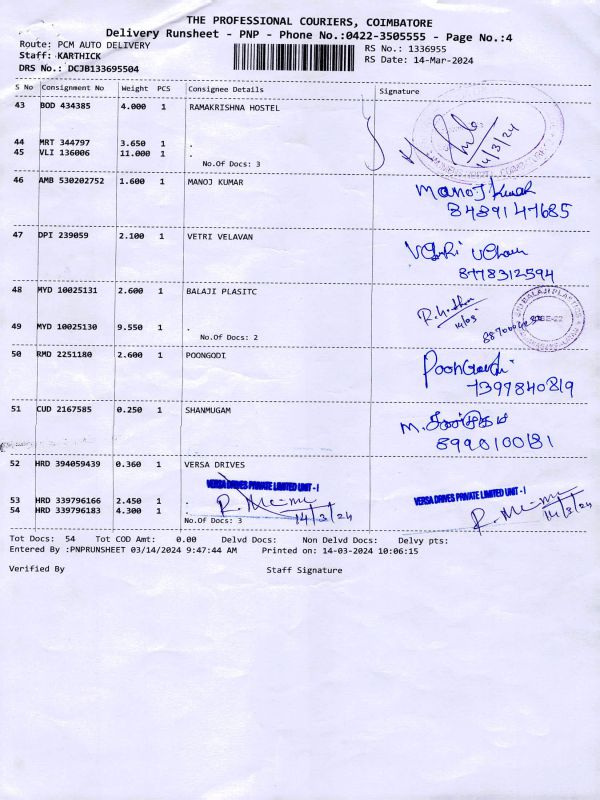 THE PROFESSIONAL COURIERS, COIMBATORE
Delivery Runsheet - PNP - Phone No.:0422-3505555 - Page No.:4
Route: PCM AUTO DELIVERY
RS No.: 1336955
Staff: KARTHICK
RS Date: 14-Mar-2024
DRS No.: DCJB133695504
S No Consignment No Weight PCS Consignee Details Signature
43 BOD 434385 4.000 1 RAMAKRISHNA HOSTEL
14/3/24
44 MRT 344797 3.650 1 .
45 VLI 136006 11.000 1 .
No.Of Docs: 3
46 AMB 530202752 1.600 1 MANOJ KUMAR Manoj Kumar
8489147685
47 DPI 239059 2.100 1 VETRI VELAVAN
8778312594
48 MYD 10025131 2.600 1 BALAJI PLASITC
BALAJI PLASTICS
14/03
49 MYD 10025130 9.550 1 .
No.Of Docs: 2
50 RMD 2251180 2.600 1 POONGODI Poongodi
7397840819
51 CUD 2167585 0.250 1 SHANMUGAM M. சண்முகம்
8990100181
52 HRD 394059439 0.360 1 VERSA DRIVES
VERSA DRIVES PRIVATE LIMITED UNIT - I
VERSA DRIVES PRIVATE LIMITED UNIT - I
53 HRD 339796166 2.450 1 .
54 HRD 339796183 4.300 1 .
14/3/24
14/3/24
No.Of Docs: 3
Tot Docs: 54 Tot COD Amt: 0.00 Delvd Docs: Non Delvd Docs: Delvy pts:
Entered By :PNPRUNSHEET 03/14/2024 9:47:44 AM Printed on: 14-03-2024 10:06:15
Verified By Staff Signature